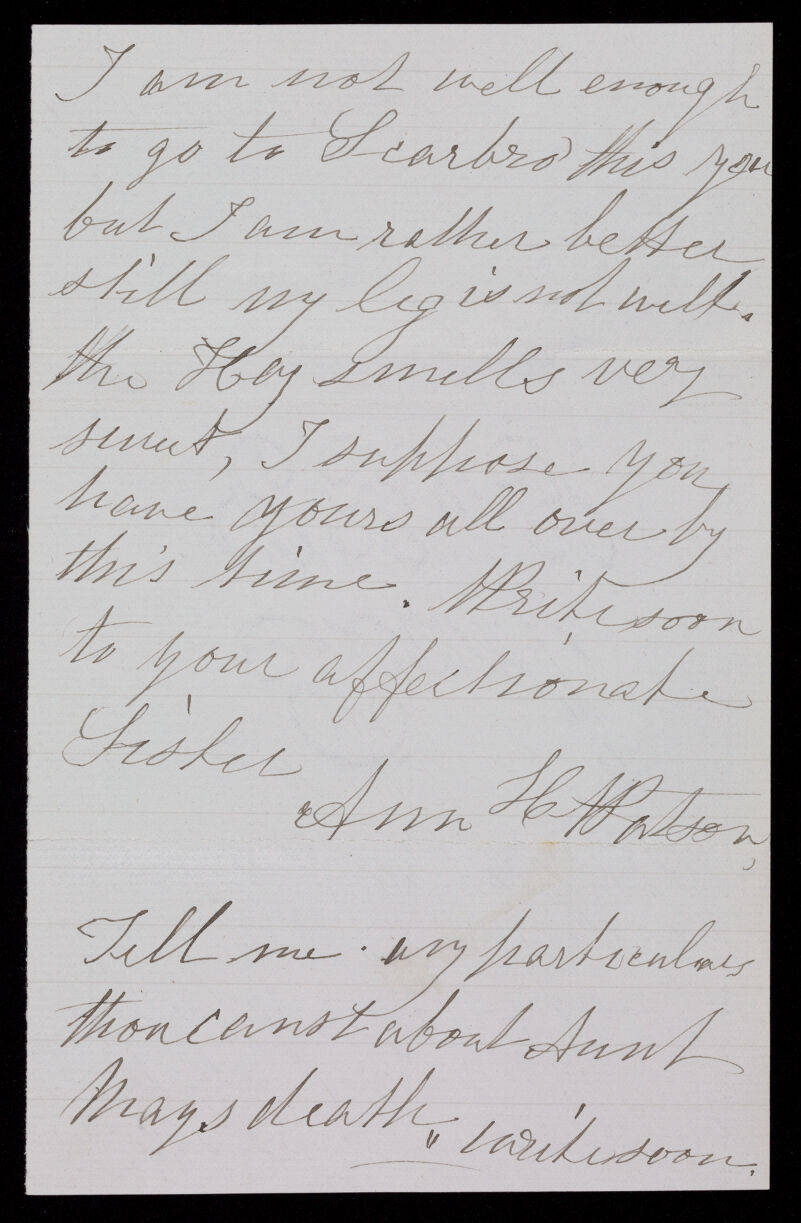 I am not well enough
to go to Scarbro' this year
but I am rather better
still my leg is not well.
the Hay smells very
sweet, I suppose you
have yours all over by
this time. Write soon
to your affectionate
Sister
Ann H Watson,
Tell me any particulars
thou canst about Aunt
Mays death, write soon.